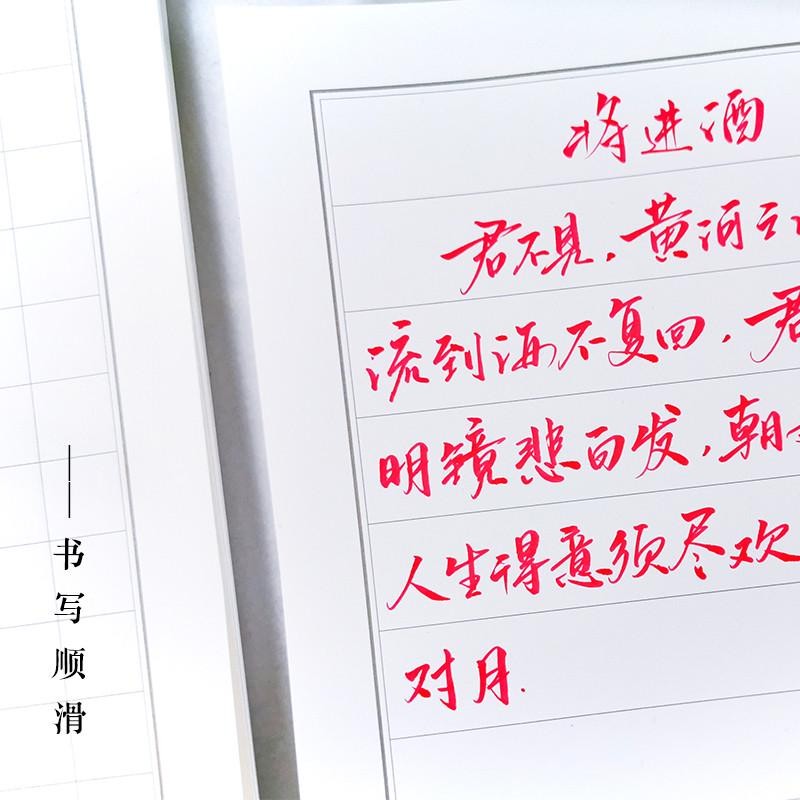 将进酒
君不见，黄河之
流到海不复回，君
明镜悲白发，朝
人生得意须尽欢
对月.
——书写顺滑